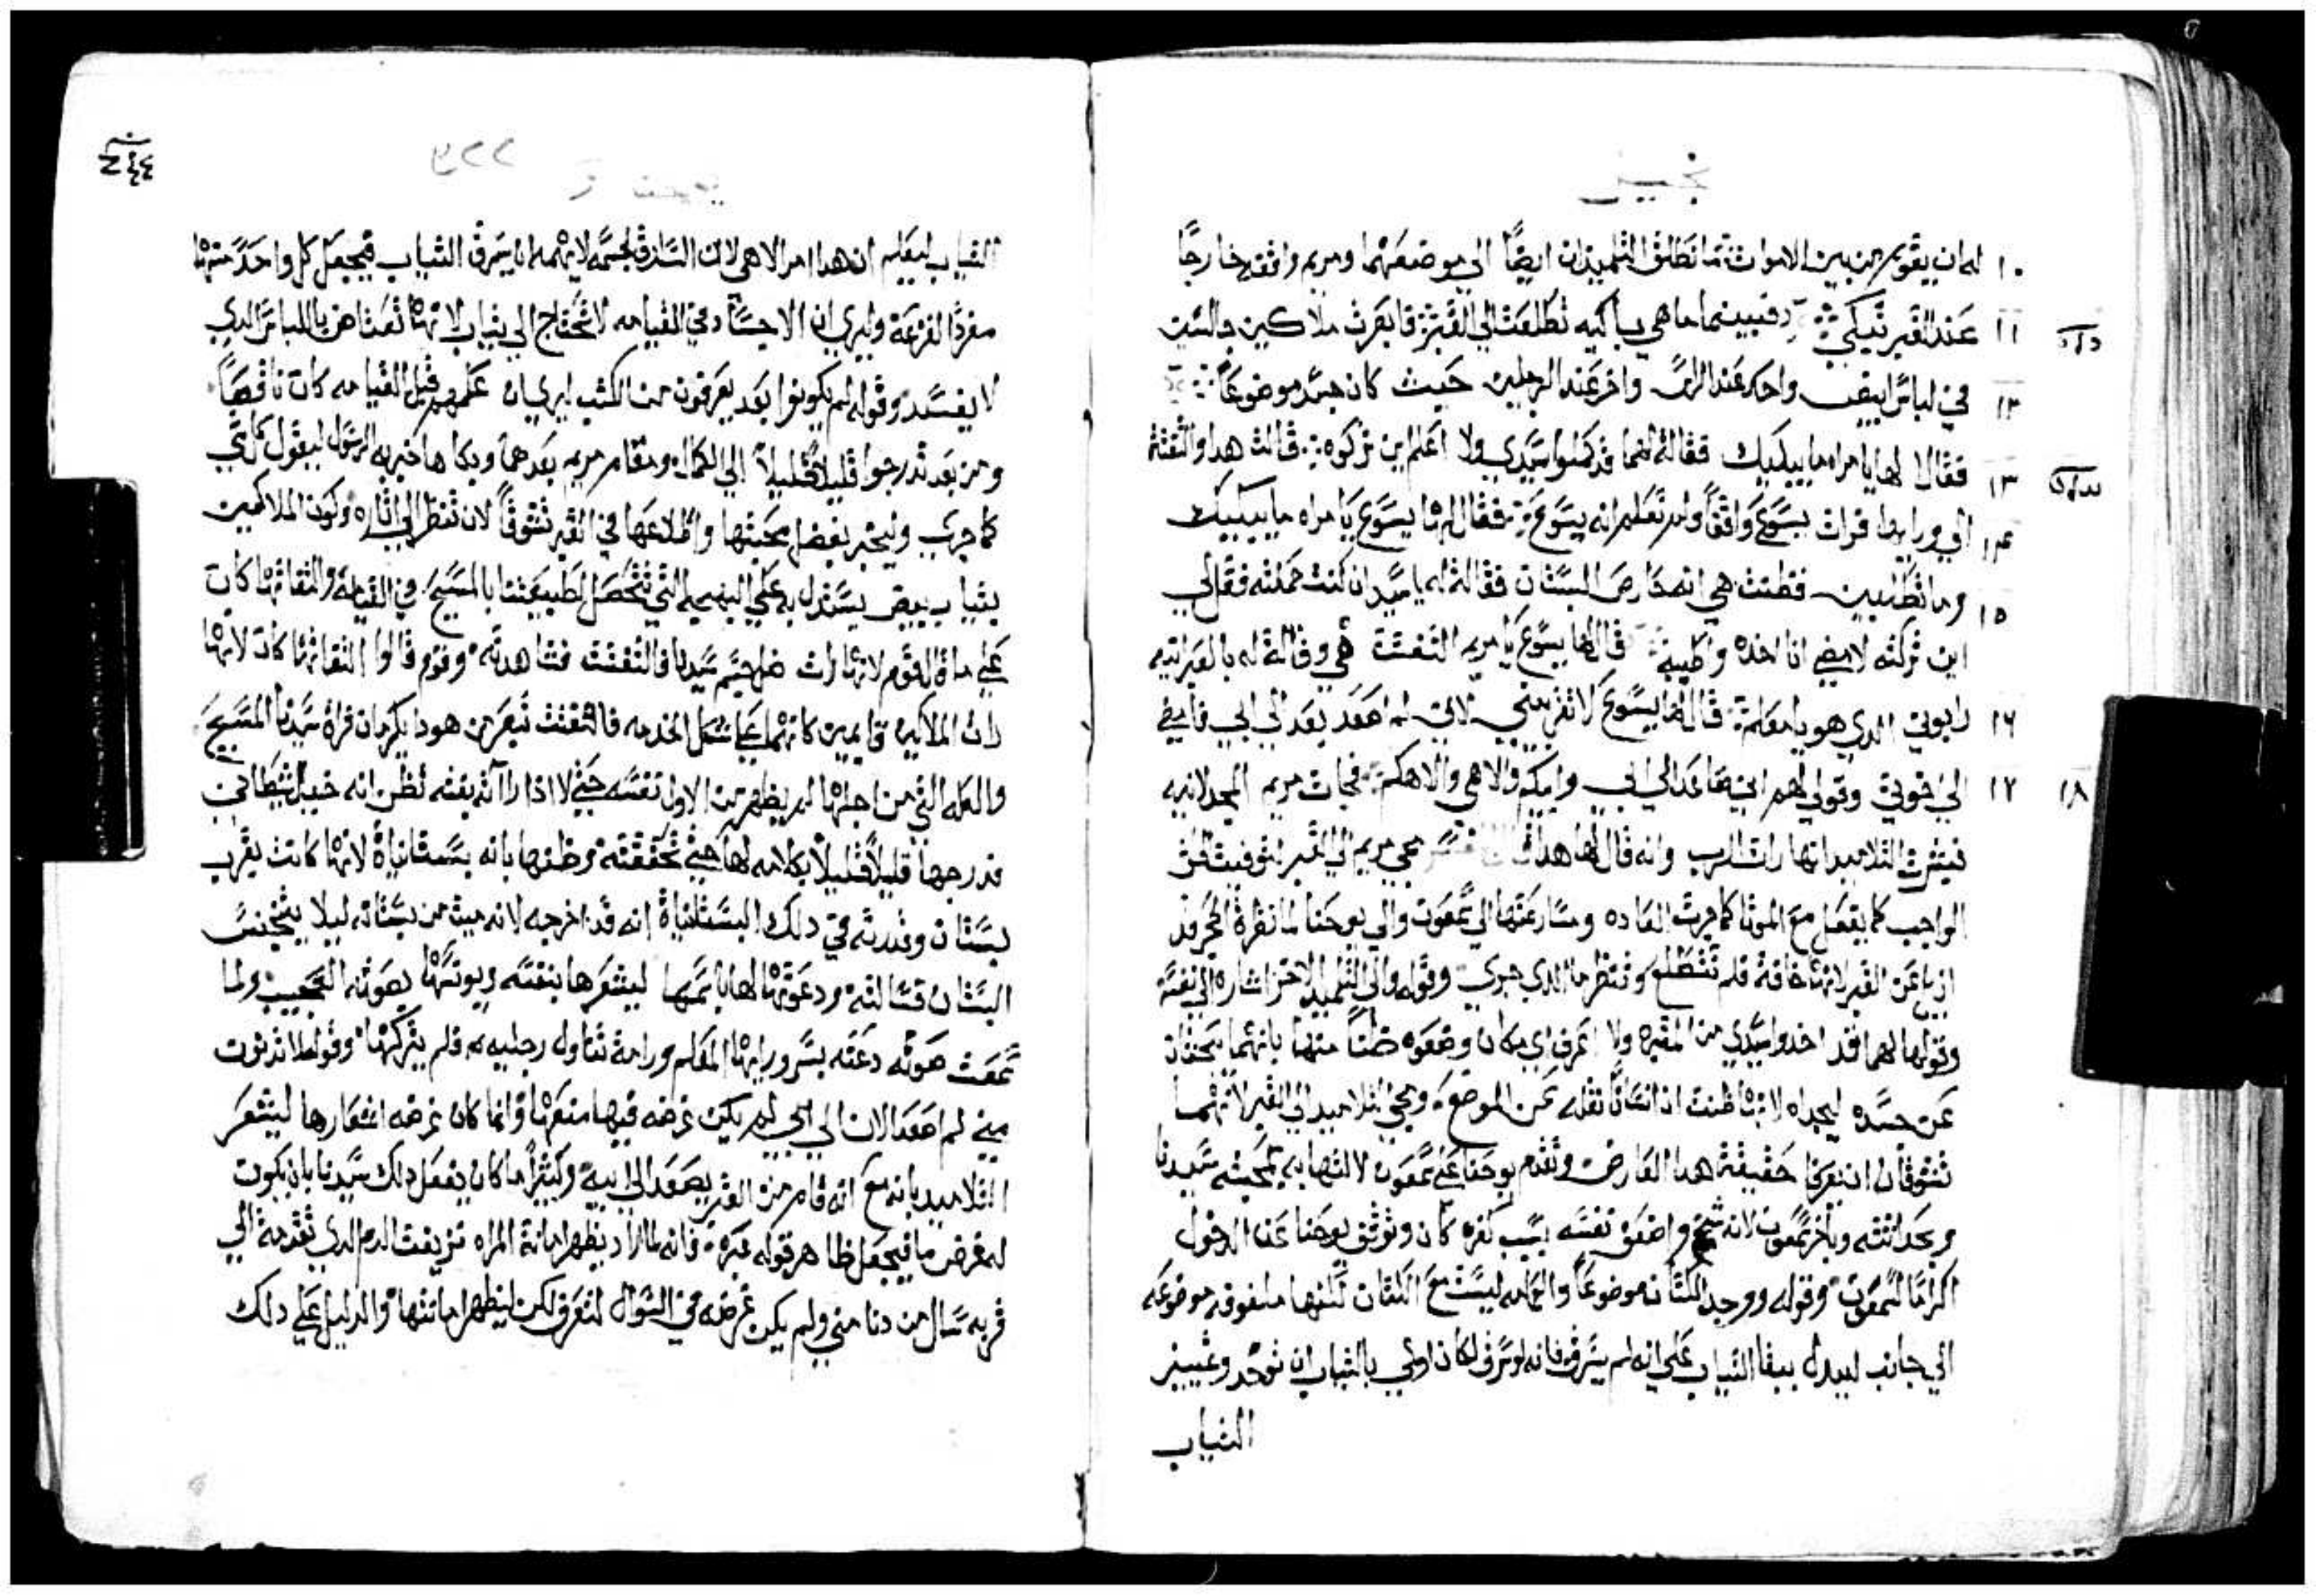 ١٠ له ان يقوم من بين الاموات ثم انطلق التلميذان ايضاً الي موضعهما ومريم واقفه خارجاً
١١ عند القبر تبكي فبينما ما هي باكيه تطلعت الي القبر فابصرت ملاكين جالسين
١٢ في لباس ابيض واحد عند الراس واخر عند الرجلين حيث كان جسد موضوعاً
١٣ فقالا لها يا امراه ما يبكيك فقالة لهما قد حملوا سيدي ولا اعلم اين تركوه قالت هدا والتفتة
١٤ الي ورايها فرات يسوع واقفاً ولم تعلم انه يسوع فقال لها يسوع يا امراه ما يبكيك
١٥ وما تطلبين فظنت هي انه حارص البستان فقالة له يا سيد ان كنت حملته فقل لي
اين تركته لامضي انا اخده واطيبه قال لها يسوع يا مريم التفتت هي وقالة له بالعبرانيه
١٦ رابوني الدي هو يا معلم قال لها يسوع لا تقربيني لاني لم اصعد بعد الي ابي فامضي
١٧ الي اخوتي وقولي لهم اني صاعد الي ابي وابيكم والاهي والاهكم فجات مريم المجدلانيه
١٨
فبشرت التلاميد انها رات الرب وانه قال لها هدا مجي مريم الي القبر لتوفيت الحق
الواجب كما يفعل مع الموتا كما جرت العاده ومسارعتها الي سمعون والي يوحنا لما نظرة الحجر قد
ازيل عن القبر لانها خافة فلم تتطلع وتنظر ما الدي جري وقوله والي التلميد الاخر اشاره الي نفسه
وقولها لهما قد اخدوا سيدي من المقبره ولا اعرف اي مكان وضعوه ظناً منها بانهما يبحثان
عن جسده ليجداه لانها ظنت ان انساناً نقله عن الموضع ومجي التلاميد الي القبر لانهما
تشوقان ان يعرفا حقيقة هدا العارض وتقدم يوحنا علي سمعون لالتهابه بمحبته سيدنا
وبحداثته وتاخر سمعون لانه شيخ واضعف نفسه بسبب كفره كان وتوثق يوحنا عن الدخول
اكراماً لسمعون وقوله ووجد الكتان موضوعاً والعمامه ليست مع الكتان لكنها ملفوفه موضوعه
الي جانب ليدل ببقا التياب علي انه لم يسرق فانه لو سرق لكان اولي بالتياب ان توخد وتمييز
التياب
٢٢٩
التياب ليعلم ان هدا امر الاهي لان السارق لجسمه لا يهمه الا يسرق التياب فيجعل كل واحد منها
مفرداً لفزعة وليري ان الاجساد في القيامه لا تحتاج الي تياب لانها تعتاض باللباس الدي
لا يفسد وقوله لم يكونوا بعد يعرفون من الكتب ليري ان علمهم قبل القيامه كان ناقصاً
ومن بعد تدرجوا قليلاً قليلاً الي الكمال ومقام مريم بعدهما وبكاها خبر به الرسول ليقول كل شي
كما جري وليخبر بفضل محبتها واطلاعها في القبر تشوقاً لان تنظر الي اتاره وكون الملاكين
بتياب بيض يستدل به علي البهجه التي تتحصل لطبيعتنا بالمسيح في القيامة والتفاتها كان
علي ما قال قوم لانها رات ظل جسم سيدنا فالتفتت فشاهدته وقوم قالوا التفاتها كان لانها
رات الملايكه قايمين كانهما علي شكل الخدمه فالتفتت تبصر من هو دا يكرمان فراة سيدنا المسيح
والعله التي من اجلها لم يظهر من الاول نفسه حتي لا ادا راته بغته تظن انه خيال شيطاني
فدرجها قليلاً قليلاً بكلامه لها حتي تحققته وظنها بانه بستانياً لانها كانت بقرب
بستان وقدرته في دلك البستانياة انه قد اخرجه لانه ميت من بستانه ليلا يتنجس
البستان فسالته ودعوتها لها باسمها ليشعرها بنفسه ويونسها بصوته العجيب ولما
سمعت صوته دعته بسرور ايها المعلم ورامة تناول رجليه فلم يتركها وقوله لا تدنوت
مني لم اصعد الان الي ابي لم يكن غرضه فيها منعها وانما كان غرضه اشعارها ليشعر
التلاميد بانه مع انه قام من القبر يصعد الي ابيه وكتيراً ما كان يفعل دلك سيدنا بان يكون
له غرض ما فيجعل ظاهر قوله غيره فانه لما اراد يظهر امانة المراه نزيفت الدم الدي تقدمة الي
قربه سال من دنا مني ولم يكن غرضه في السوال لتعرف لكن ليظهر امانتها والدليل علي دلك